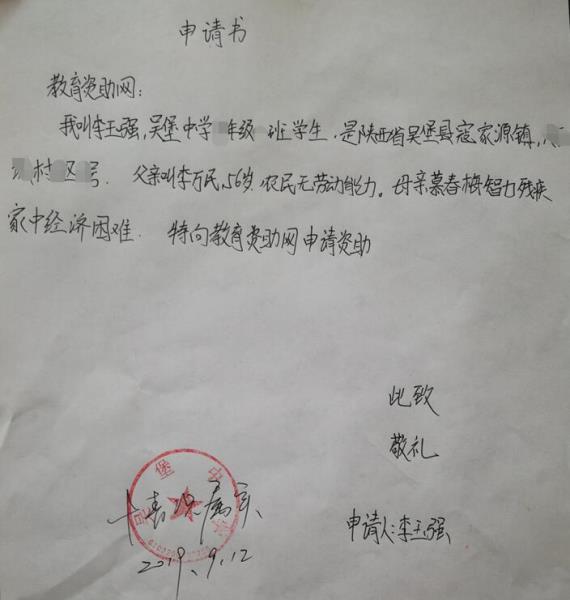 申请书
教育资助网:
我叫李玉强,吴堡中学 年级 班学生.是陕西省吴堡县寇家源镇,
村 号. 父亲叫李万民,56岁,农民无劳动能力。母亲慕春梅智力残疾
家中经济困难. 特向教育资助网申请资助
此致
敬礼
申请人:李玉强
吴堡中学
情况属实
2019.9.12